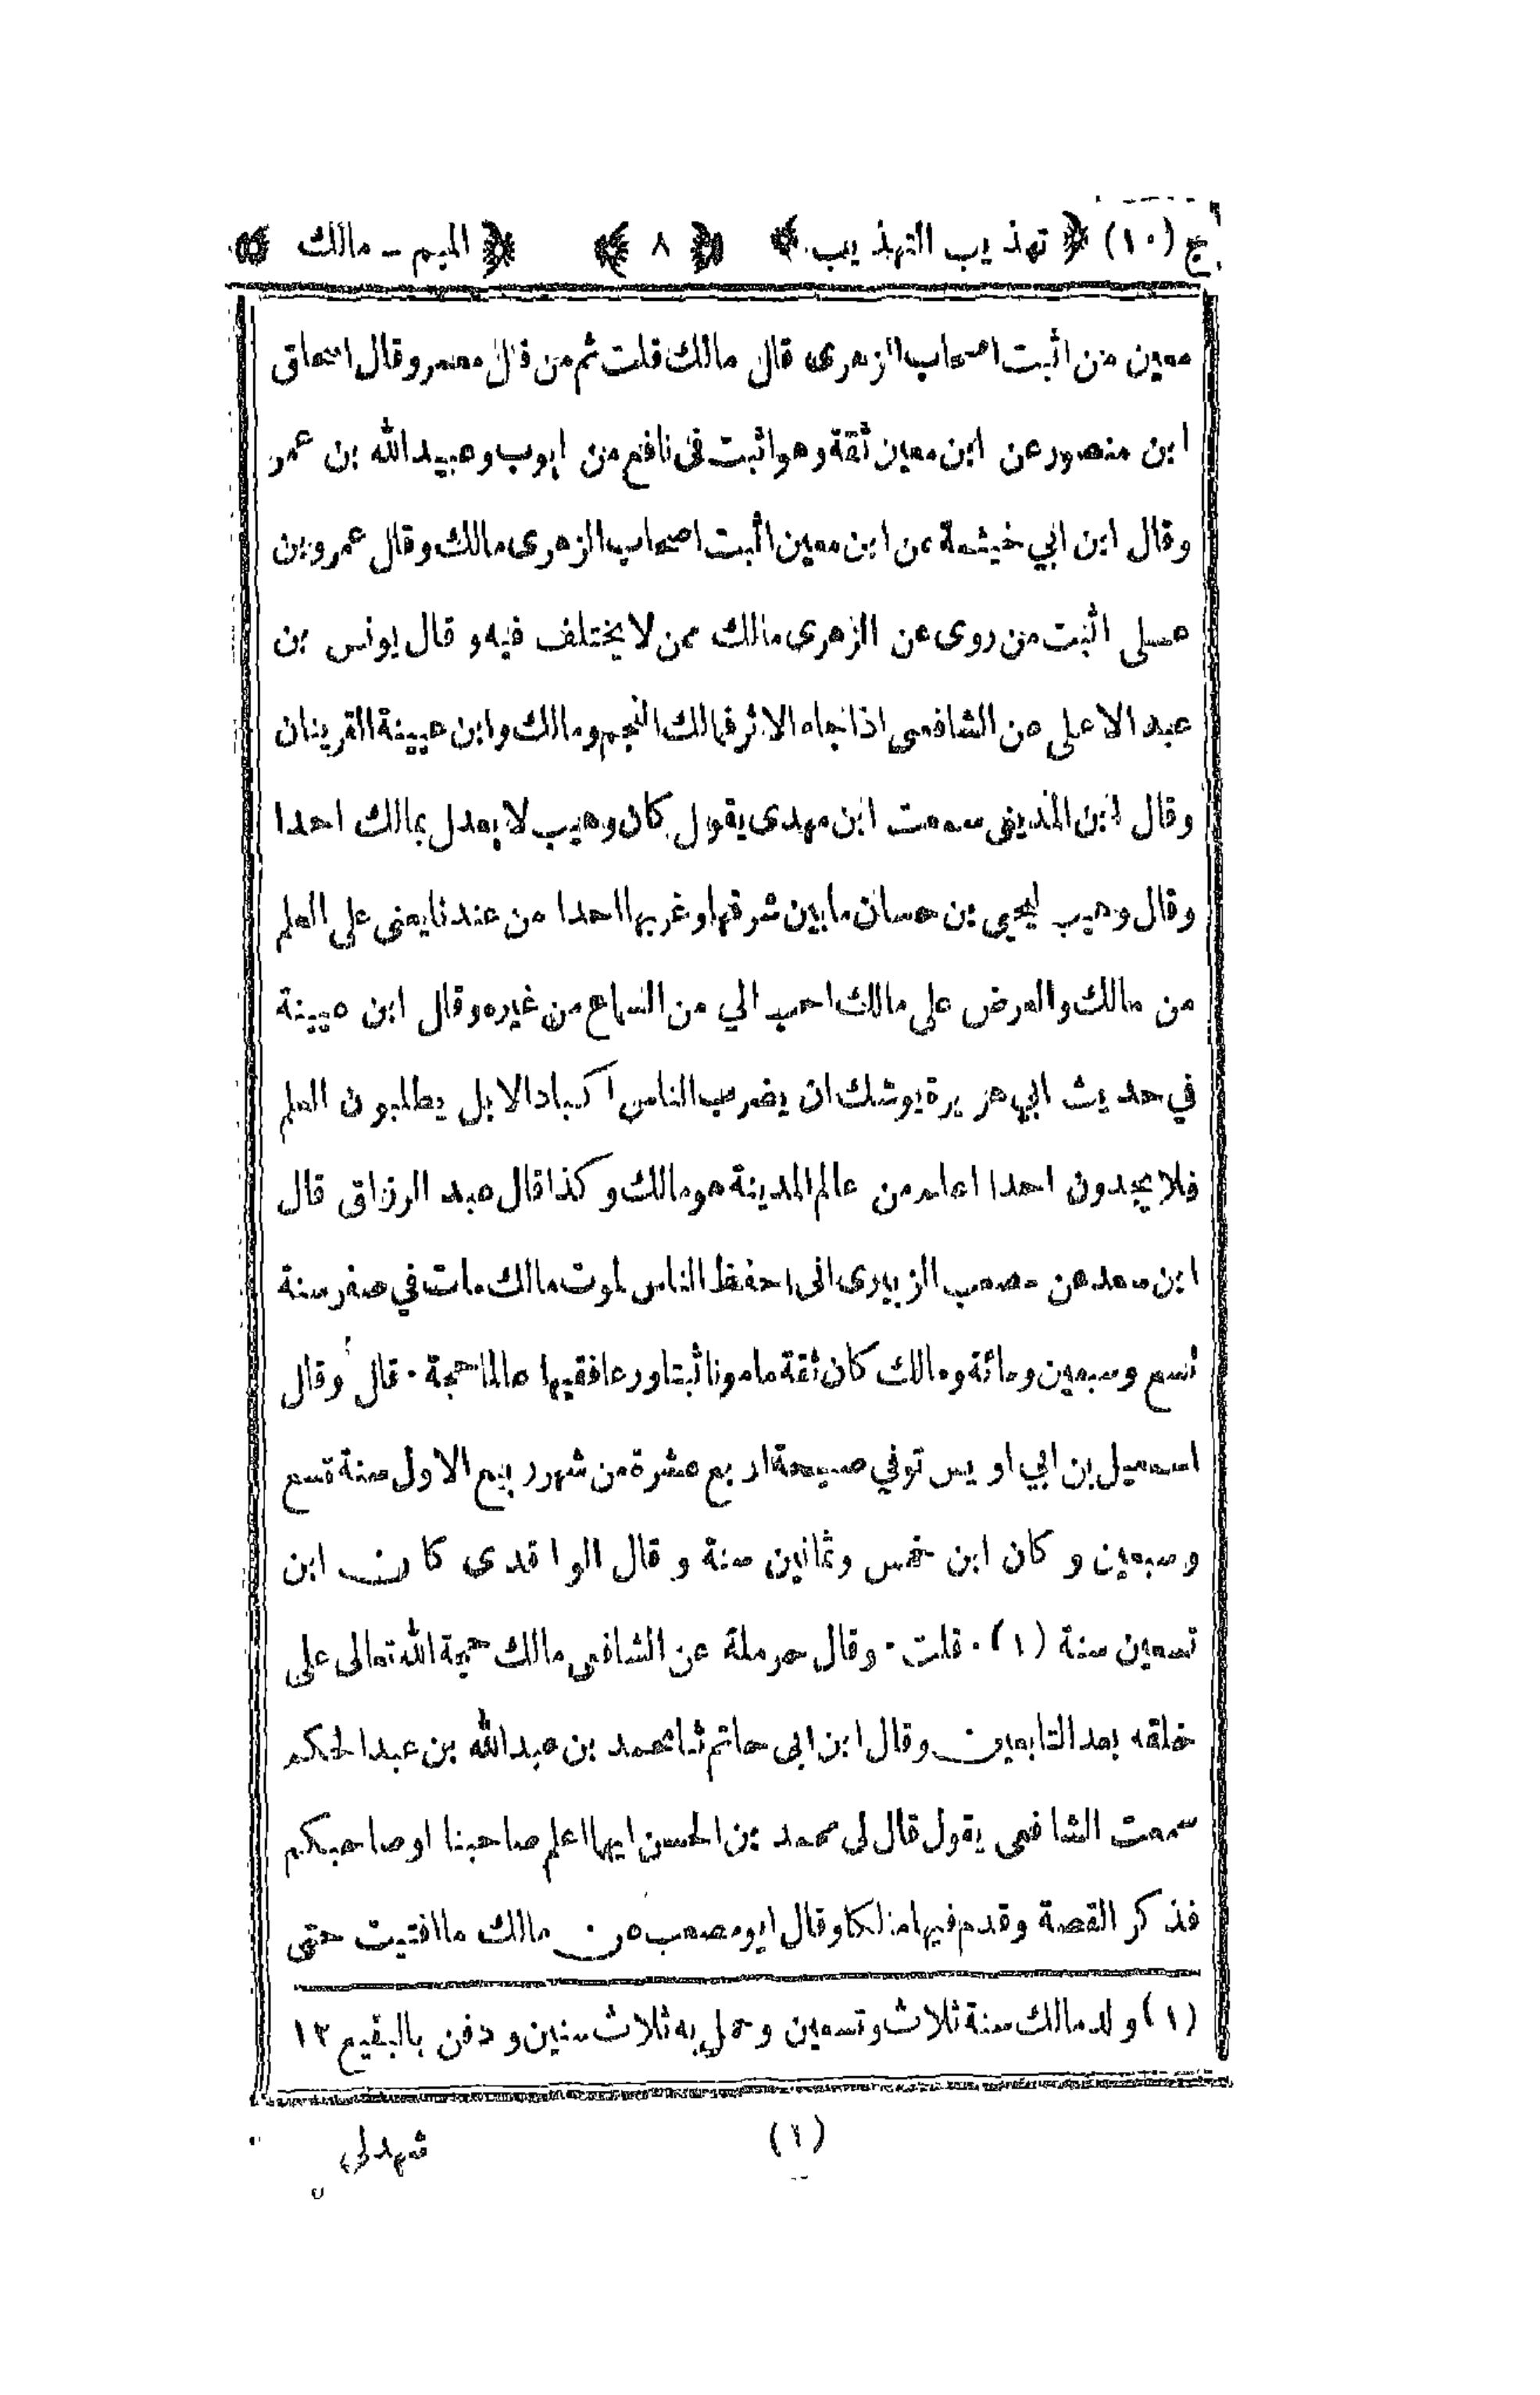 ج (١٠) ﴿ تهذيب التهذيب ﴾ ﴿ ٨ ﴾ ﴿ الميم ـ مالك ﴾
معين من اثبت اصحاب الزهرى قال مالك قلت ثم من قال معمر وقال اسحاق
ابن منصور عن ابن معين ثقة وهو اثبت فى نافع من ايوب وعبيد الله بن عمر
وقال ابن ابي خيثمة عن ابن معين اثبت اصحاب الزهرى مالك وقال عمرو بن
على اثبت من روى عن الزهرى مالك ممن لا يختلف فيه و قال يونس بن
عبد الاعلى عن الشافعى اذا جاء الاثر فمالك النجم ومالك وابن عيينة القرينان
وقال ابن المدينى سمعت ابن مهدى يقول كان وهيب لا يعدل بمالك احدا
وقال وهيب ليحيى بن حسان ما بين شرقها وغربها احدا من عندنا يعنى على العلم
من مالك والعرض على مالك احب الي من السماع من غيره وقال ابن عيينة
في حديث ابي هريرة يوشك ان يضرب الناس اكباد الابل يطلبون العلم
فلا يجدون احدا اعلم من عالم المدينة هو مالك وكذا قال عبد الرزاق قال
ابن سعد عن مصعب الزبيرى انى احفظ الناس لموت مالك مات في صفر سنة
تسع وسبعين ومائة ومالك كان ثقة مامونا ثبتا ورعا فقيها عالما حجة ٠ قال وقال
اسمعيل بن ابي اويس توفي صبيحة اربع عشرة من شهر ربيع الاول سنة تسع
وسبعين وكان ابن خمس وثمانين سنة وقال الواقدى كان ابن
تسعين سنة (١) ٠ قلت ٠ وقال حرملة عن الشافعى مالك حجة الله تعالى على
خلقه بعد التابعين وقال ابن ابى حاتم ثنا محمد بن عبد الله بن عبد الحكم
سمعت الشافعى يقول قال لى محمد بن الحسن ايهما اعلم صاحبنا او صاحبكم
فذكر القصة وقدم فيها مالكا وقال ابو مصعب عن مالك ما افتيت حتى
(١) ولد مالك سنة ثلاث وتسعين وحمل به ثلاث سنين ودفن بالبقيع ١٢
(١) شهد لى